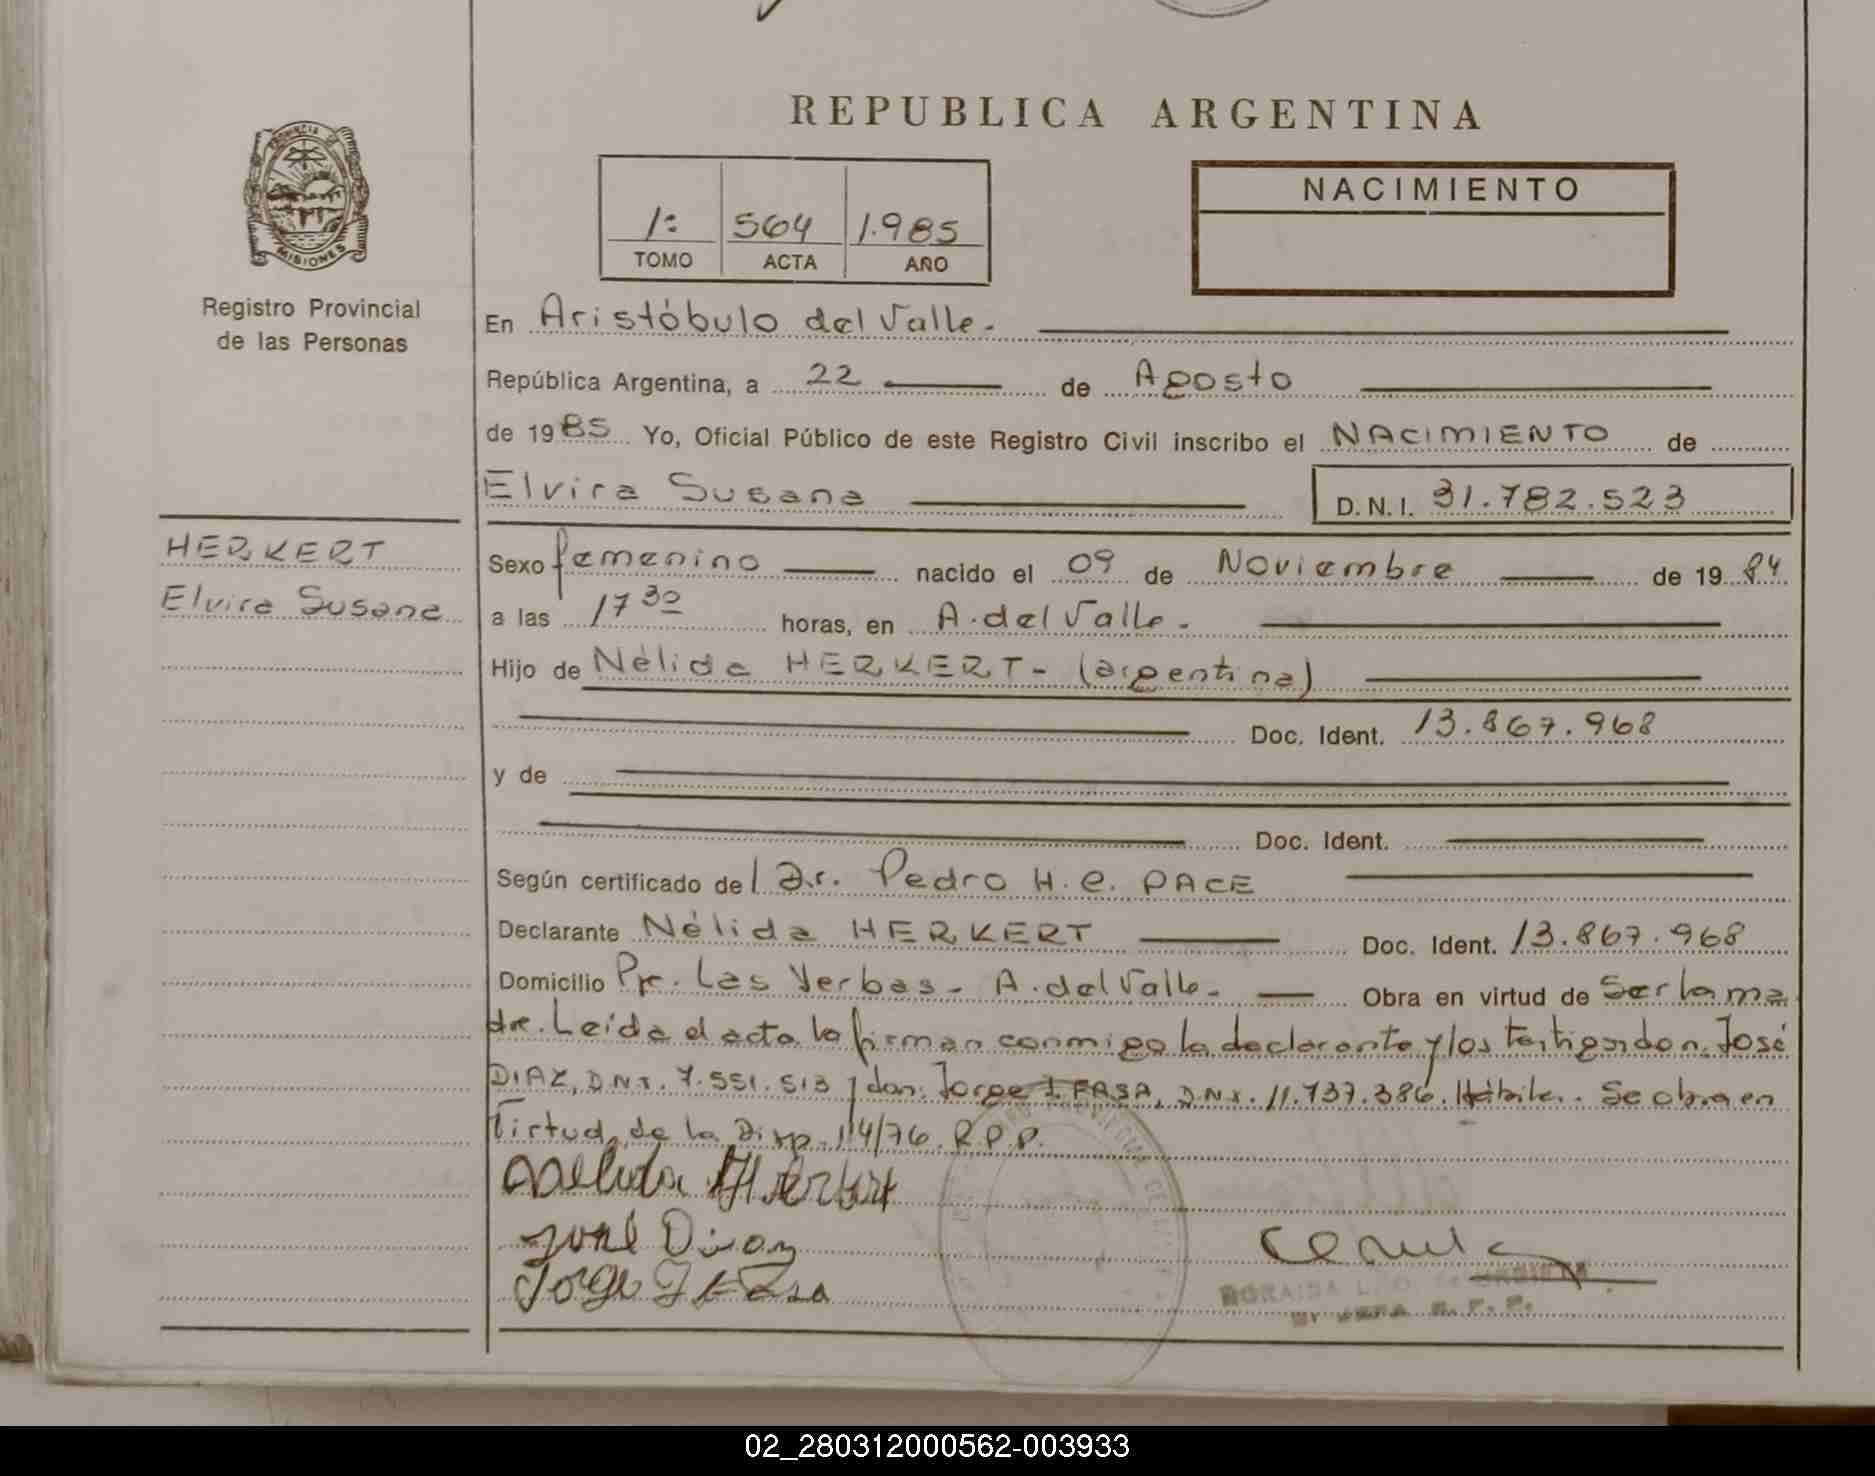 REPUBLICA ARGENTINA
PROVINCIA DE
MISIONES
Registro Provincial
de las Personas
1: 564 1.985
TOMO ACTA AÑO
NACIMIENTO
En Aristóbulo del Valle.
República Argentina, a 22 de Agosto
de 1985 Yo, Oficial Público de este Registro Civil inscribo el NACIMIENTO de
Elvira Susana D.N.I. 31.782.523
HERKERT
Elvira Susana
Sexo femenino nacido el 09 de Noviembre de 19 84
a las 17 30 horas, en A. del Valle.
Hijo de Nélida HERKERT - (argentina)
Doc. Ident. 13.867.968
y de
Doc. Ident.
Según certificado del Dr. Pedro H. C. PACE
Declarante Nélida HERKERT Doc. Ident. 13.867.968
Domicilio Pje. Las Yerbas - A. del Valle. Obra en virtud de Ser la ma
dre. Leída el acta la firman conmigo la declarante y los testigos don: José
DIAZ, D.N.I. 7.551.513 y don: Jorge I. FASA, D.N.I. 11.737.386. Hábiles. Se obra en
Virtud de la Disp. 14/76. R.P.P.
Nelida Herkert
José Diaz
Jorge I Fasa
R. P. P.
02_280312000562-003933